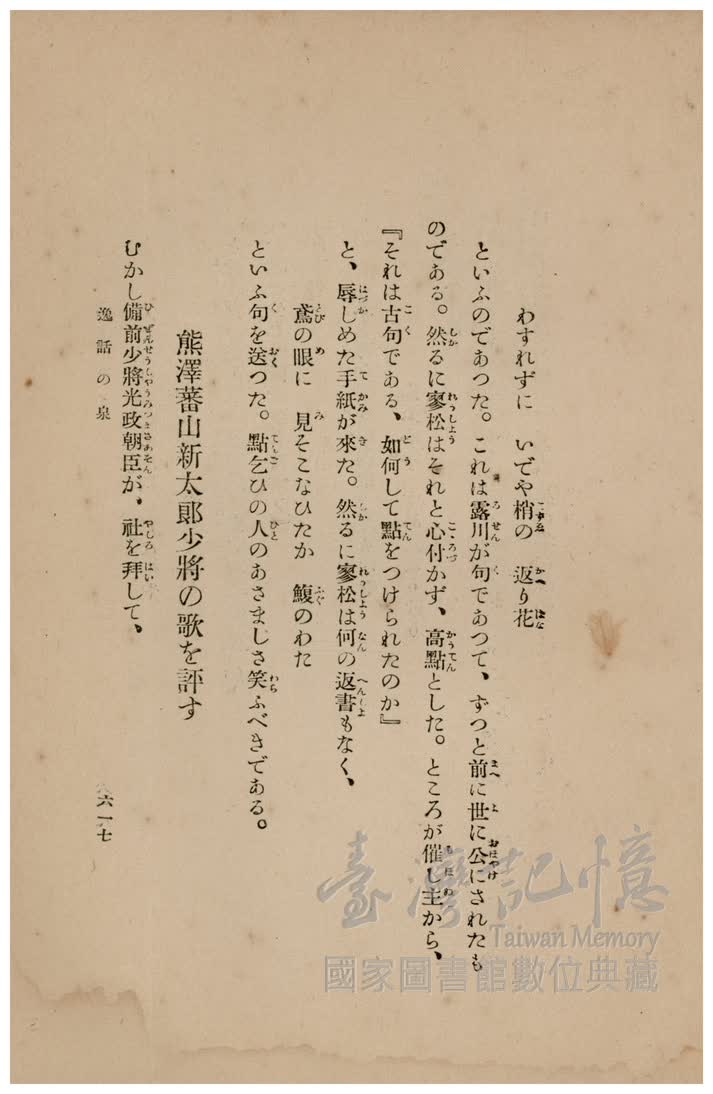 わすれずに　いでや梢の　返り花
といふのであつた。これは露川が句であつて、ずつと前に世に公にされたも
のである。然るに寥松はそれと心付かず、高點とした。ところが催し主から、
『それは古句である、如何して點をつけられたのか』
と、辱しめた手紙が來た。然るに寥松は何の返書もなく、
鳶の眼に　見そこなひたか　鰒のわた
といふ句を送つた。點乞ひの人のあさましさ笑ふべきである。
熊澤蕃山新太郞少將の歌を評す
むかし備前少將光政朝臣が、社を拜して、
逸話の泉
六一七
臺灣記憶
Taiwan Memory
國家圖書館數位典藏